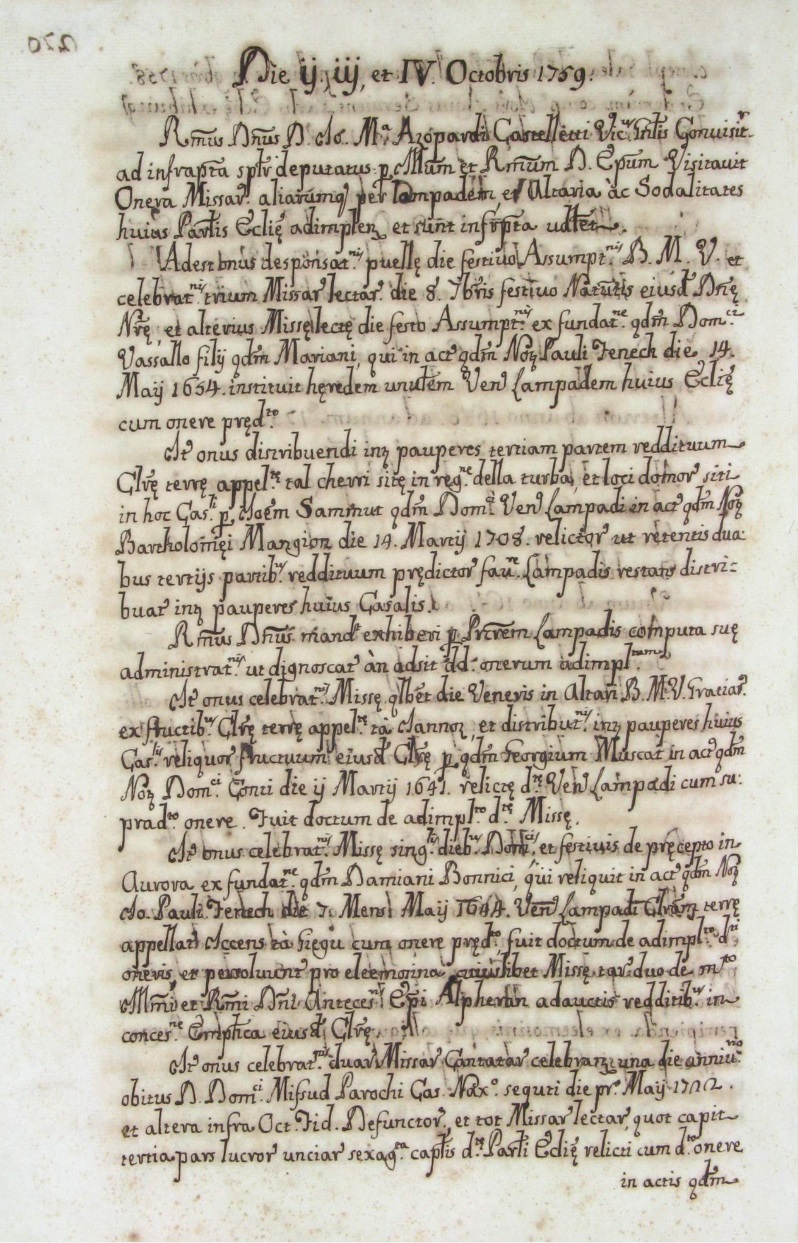 Die ij. iij, et IV. Octobris 1759.
Rm̃us Dñus D. Jo. M.ª Azopardi Castelletti Vic.s Gñlis Convisit.r
ad infrapta spṫr deputatus p Illum et Rm̃um D. Epum Visitavit
Onera Missar. aliarumq per Lampadem, et Altaria ac Sodalitates
huius Parlis Eclię adimplen, et sunt infrpta udt.
Adest onus desponsat.nis puellę die festivo Assumpt.nis B. M. V. et
celebrat.nis trium Missar lectar. die 8. 7bris festivo Natutis eiusd Dnę
Nrę, et alterius Missę lectę die festo Assumpt.nis ex fundat.ne qdm̃ Dom.ci
Vassallo filij qdm̃ Mariani, qui in act qdm̃ Noz Pauli Fenech die 14.
Maij 1654. instituit hęredem unulem Ven Lampadem huius Eclię
cum onere pręd.to
It onus distribuendi inz pauperes tertiam partem reddituum
Clrę terrę appel.te tal cherri sitę in reg.ne della turba, et loci domor siti
in hoc Cas.li p Joem Sammut qdm̃ Dom.ci Ven Lampadi in act qdm̃ Noz
Bartholomęi Mangion die 14. Martij 1708. relictor ut retentis dua:
bus tertijs partib.s reddituum prędictor fav.e Lampadis restans distri:
buat inz pauperes huius Casalis.
Rm̃us Dñus mand.t exhiberi p Prrem Lampadis computa suę
administrat.nis ut dignoscat an adsit dd. onerum adimpl.ramtum
It onus celebrat.nis Missę qlbet die Veneris in Altari B. M. V. Gratiar.
ex fructib.s Clrę terrę appel.te ta Jannoz, et distribut.nis inz pauperes huius
Cas.lis reliquor fructuum eiusd Clrę p qdm̃ Georgium Muscat in act qdm̃
Noz Dom.ci Conti die ij Martij 1641. relictę d.te Ven Lampadi cum su:
prad.to onere. Fuit doctum de adimpl.to d.tę Missę.
It onus celebrat.nis Missę sing.lis dieb.s Domcis, et festivis de pręcepto in
Aurora ex fundat.ne qdm̃ Damiani Bonnici, qui reliquit in act qdm̃ Noz
Jo. Pauli Fenech die 7. Mens Maij 1644. Ven Lampadi Clram terrę
appellat Iccens ta Giegu cum onere pręd.to, fuit doctum de adimpl.to d.ti
oneris, et persolvunt pro eleemosina cuiuslibet Missę tar. duo de m.to
Illmi et Rmi Dni Anteces.ris Epi Alpheran adauctis redditib.s in
conces.ne Emptica eiusd Clrę.
It onus celebrat.nis duar Missar Cantatar celebranz una die anniv.rio
obitus D. Dom.ci Mifsud Parochi Cas. Nax.o sequti die pr.a Maij 1702.
et altera infra Oct. Fid. Defunctor, et tot Missar lectar quot capit
tertia pars lucror unciar sexag.ta captis d.tę Parli Eclię relicti cum d.to onere
in actis qdm̃